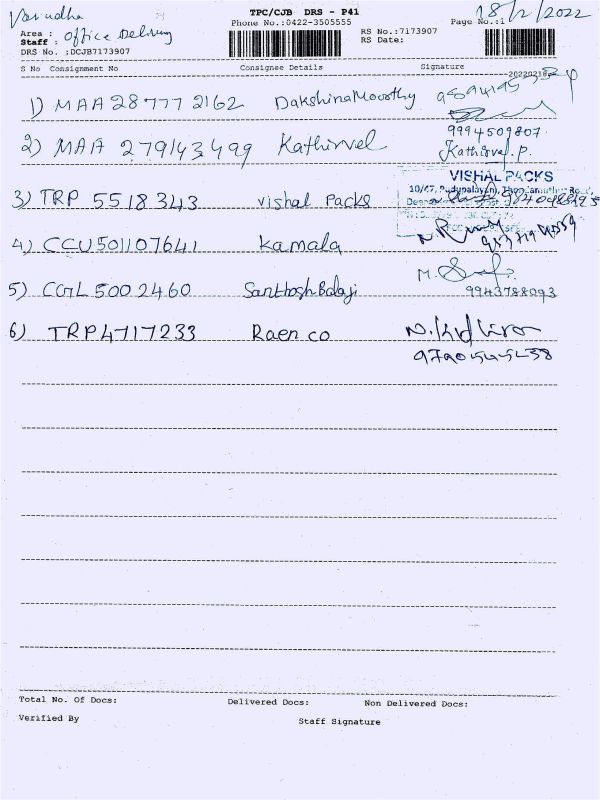 Varudha
TPC/CJB DRS - P41
18/2/2022
Phone No.:0422-3505555
Page No.:1
Area :
Staff : Office Delivery
RS No.:7173907
RS Date:
DRS No. :DCJB7173907
S No Consignment No Consignee Details Signature
1) MAA 28777 2162 Dakshinamoorthy
2) MAA 279143499 Kathirvel 9994509807
Kathirvel.P.
VISHAL PACKS
3) TRP 5518343 Vishal Packs
4) CCU501107641 Kamala
5) CGL 5002460 Santhosh Balaji
9943788093
6) TRP4717233 Raen co
Total No. Of Docs: Delivered Docs: Non Delivered Docs:
Verified By Staff Signature